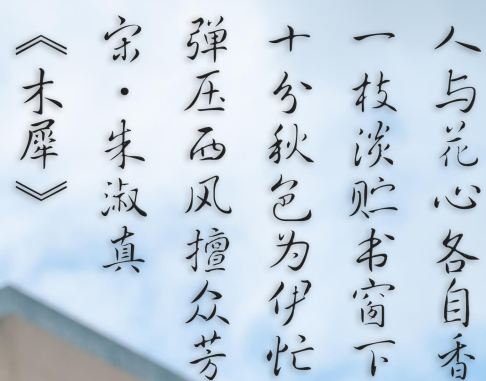 《木犀》
宋·朱淑真
弹压西风擅众芳
十分秋色为伊忙
一枝淡贮书窗下
人与花心各自香